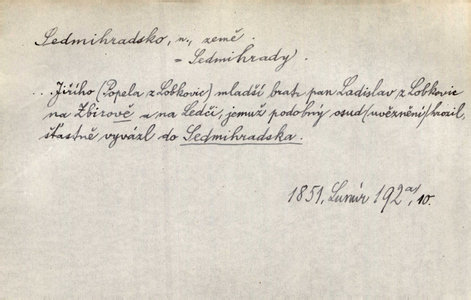 Sedmihradsko, n., země.
= Sedmihrady.
... Jiřího (Popela z Lobkovic) mladší bratr pan Ladislav z Lobkovic
na Zbirově a na Ledči, jemuž podobný osud (uvěznění) hrozil,
šťastně vyvázl do Sedmihradska.
1851, Lumír 192 a/, 10.